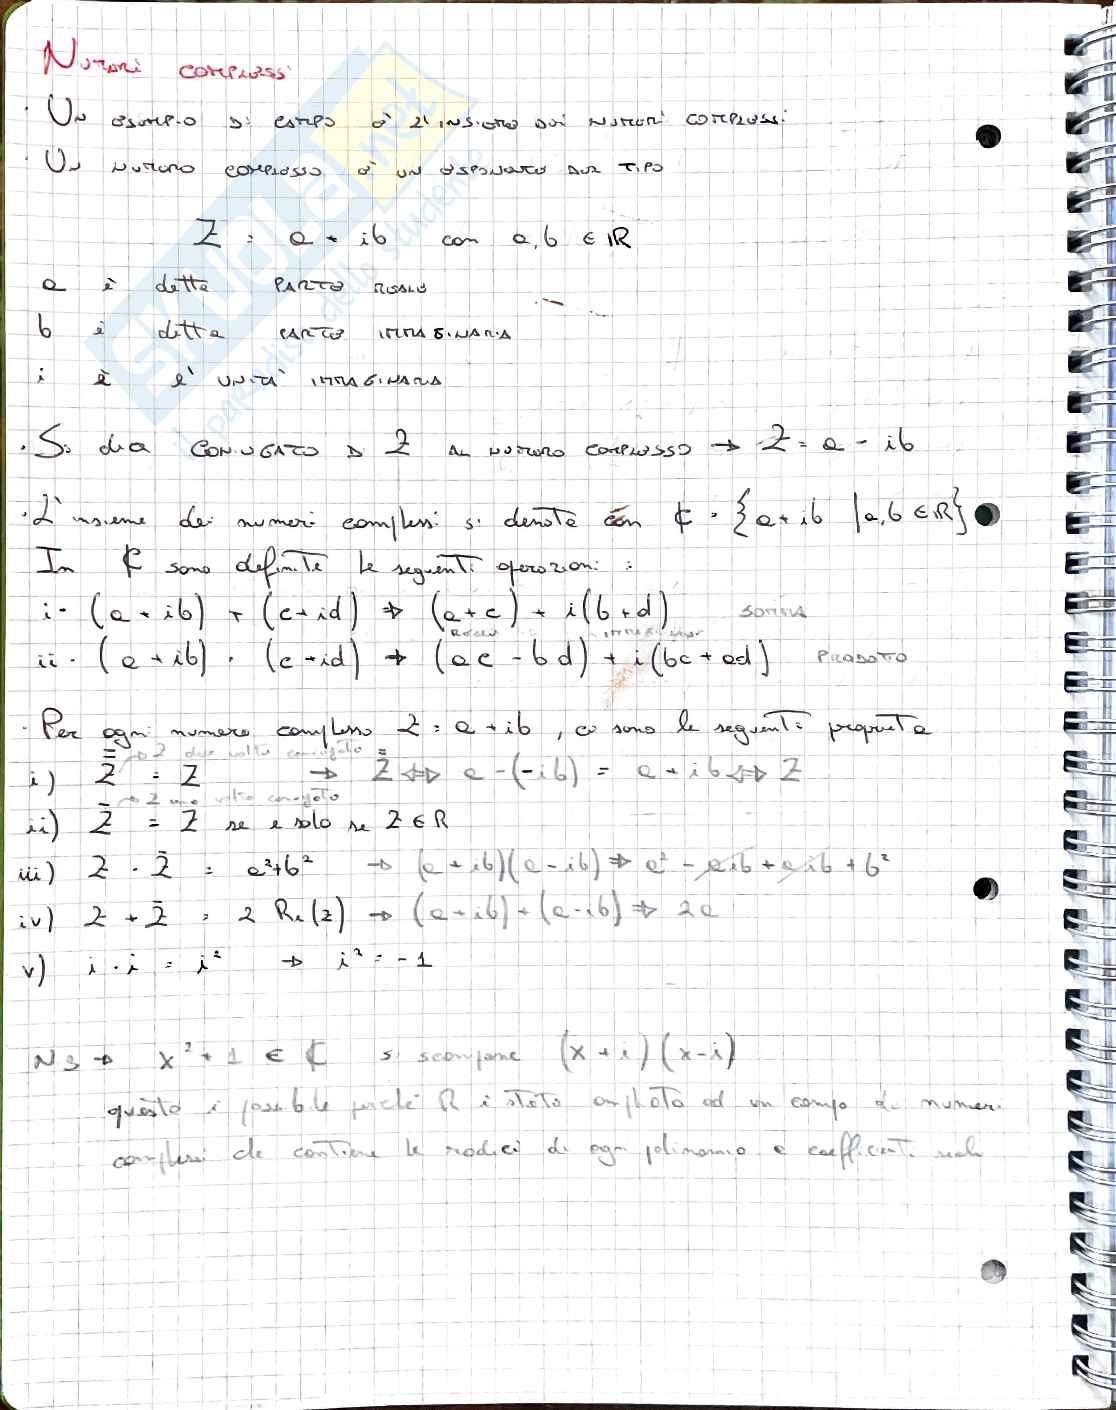 Numeri complessi
· Un esempio di campo è l'insieme dei numeri complessi
· Un numero complesso è un esponente del tipo
Z = a + ib con a, b ∈ ℝ
a è detta parte reale
b è detta parte immaginaria
i è l'unità immaginaria
· Si dia coniugato di Z al numero complesso → Z = a - ib
· L'insieme dei numeri complessi si denota con ℂ = {a + ib | a, b ∈ ℝ}
In ℂ sono definite le seguenti operazioni:
i · (a + ib) + (c + id) ⇒ (a + c) + i(b + d) somma
reale immaginar
ii · (a + ib) · (c + id) → (ac - bd) + i(bc + ad) prodotto
· Per ogni numero complesso Z = a + ib, ci sono le seguenti proprietà
→ Z due volte coniugato
i) Z̿ = Z → Z̿ ⇔ a - (-ib) = a + ib ⇔ Z
→ Z una volta coniugato
ii) Z̄ = Z se e solo se Z ∈ ℝ
iii) Z · Z̄ = a² + b² → (a + ib)(a - ib) ⇒ a² - aib + aib + b²
iv) Z + Z̄ = 2 Re(z) → (a + ib) + (a - ib) ⇒ 2a
v) i · i = i² → i² = -1
NB → x² + 1 ∈ ℂ si scompone (x + i)(x - i)
questo è possibile perché ℝ è stato ampliato ad un campo di numeri
complessi che contiene le radici di ogni polinomio a coefficienti reali
SKUOLA.net
il paradiso dello studente